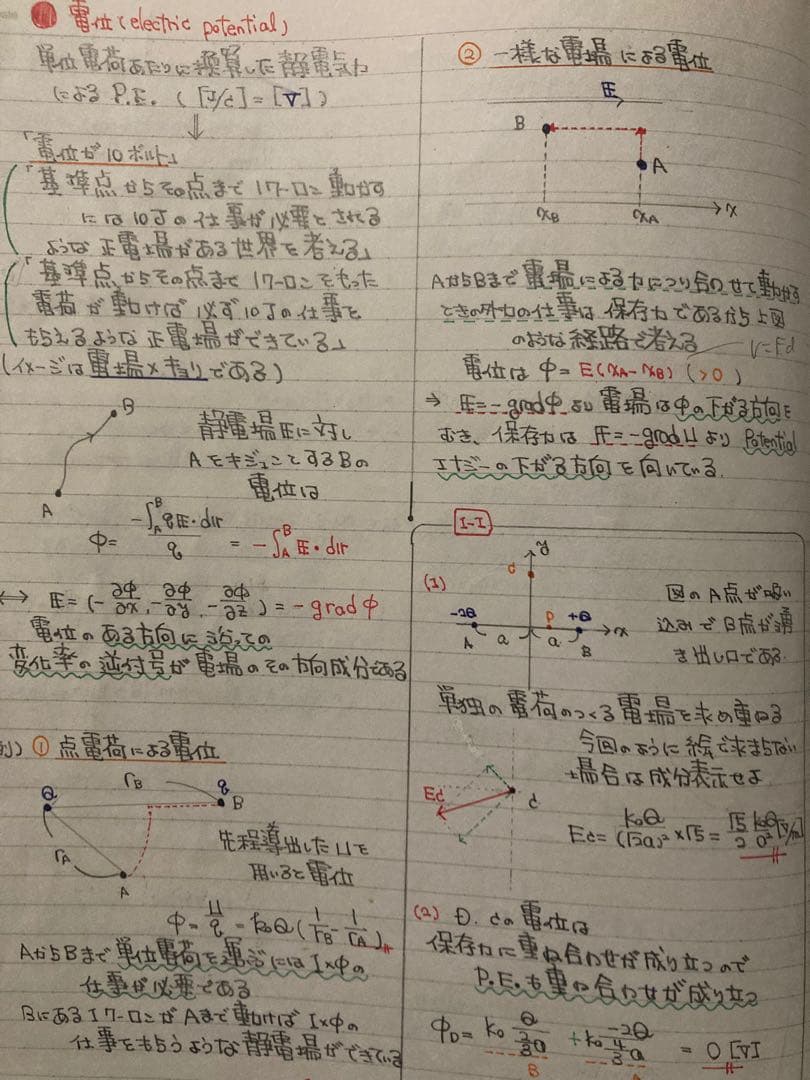 電位(electric potential)
単位電荷あたりに換算した静電気力
による P.E. ([J/C]=[V])
⇓
「電位が10ボルト」
「基準点からその点まで 1クーロン動かす
には 10Jの仕事が必要とされる
ような正電場がある世界を考える」
「基準点からその点まで 1クーロンをもった
電荷が動けば必ず10Jの仕事を
もらえるような正電場ができている」
(イメージは電場×キョリである)
B
A
静電場Eに対し
AをキジュンとするBの
電位は
φ= -∫_A^B qE・dr / q = -∫_A^B E・dr
↔ E=(-∂φ/∂x, -∂φ/∂y, -∂φ/∂z)= -gradφ
電位のある方向に沿っての
変化率の逆符号が電場のその方向成分である
例) ① 点電荷による電位
Q r_B q B
r_A
A
先程導出したUを
用いると電位
φ= U/q = k₀Q(1/r_B - 1/r_A)
AからBまで単位電荷を運ぶには1×φの
仕事が必要である
Bにある1クーロンがAまで動けば1×φの
仕事をもらうような静電場ができている
② 一様な電場による電位
E
B
A
x_B x_A x
AからBまで電場による力につり合わせて動かす
ときの外力の仕事は保存力であるから上図
のような経路で考える
V=Ed
電位は φ= E(x_A-x_B) (>0)
⇒ E=-gradφ より電場はφの下がる方向を
むき、保存力は F=-gradU より Potential
エナジーの下がる方向を向いている.
I-1
(1)
y
C
-2Q P +Q x
A a a B
図のA点が吸い
込みでB点が湧
き出し口である
単独の電荷のつくる電場を求め重ねる
今回のように絵で求まらない
場合は成分表示せよ
Ec
C
Ec= k₀Q/(√2a)² ×√5 = √5/2 k₀Q/a² [V/m]
(2) D. Cの電位は
保存力に重ね合わせが成り立つので
P.E.も重ね合わせが成り立つ
φ_D= k₀ Q/(2/3 a) + k₀ -2Q/(4/3 a) = 0 [V]
B
A